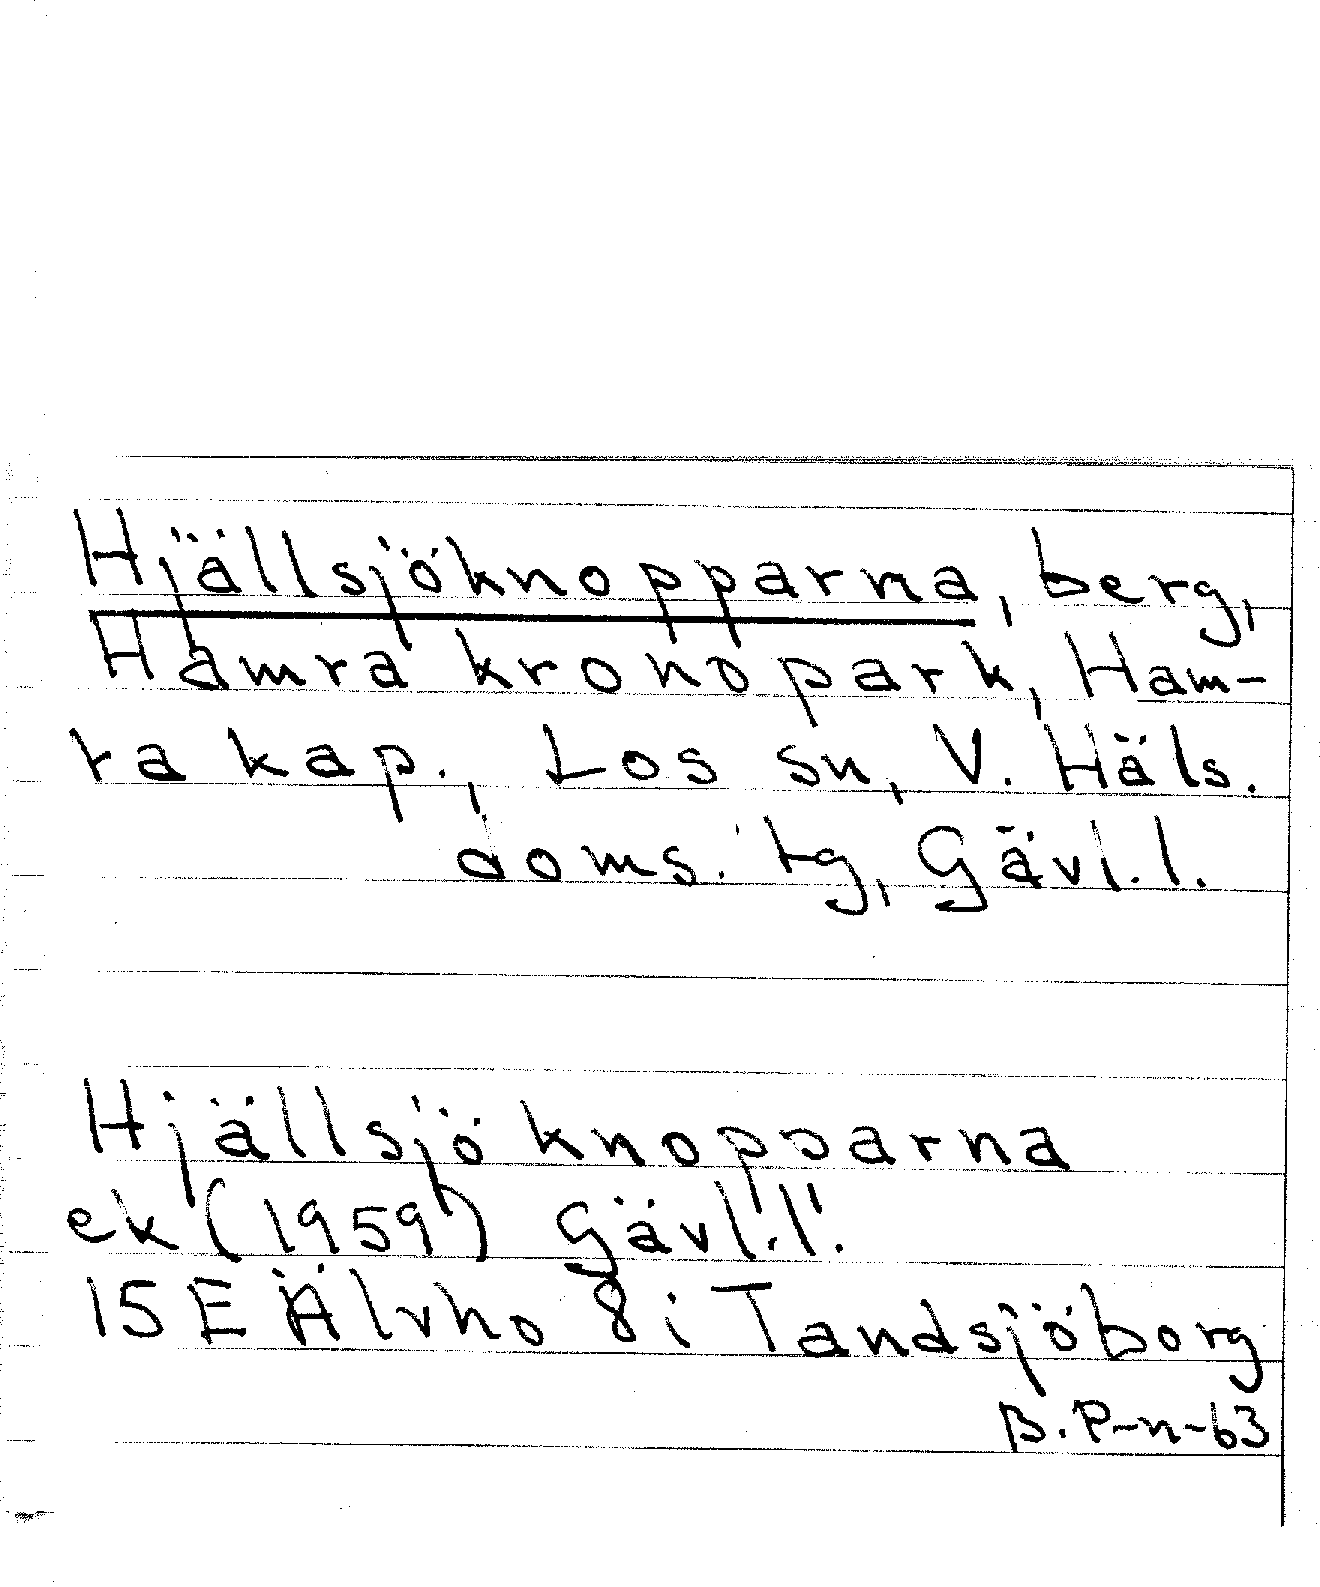 Hjällsjöknopparna, berg,
Hamra kronopark, Ham-
ra kap., Los sn, V. Häls.
doms. tg, Gävl.l.
Hjällsjöknopparna
ek (1959) Gävl.l.
15E Älvho 8i Tandsjöborg
B.P-n-63